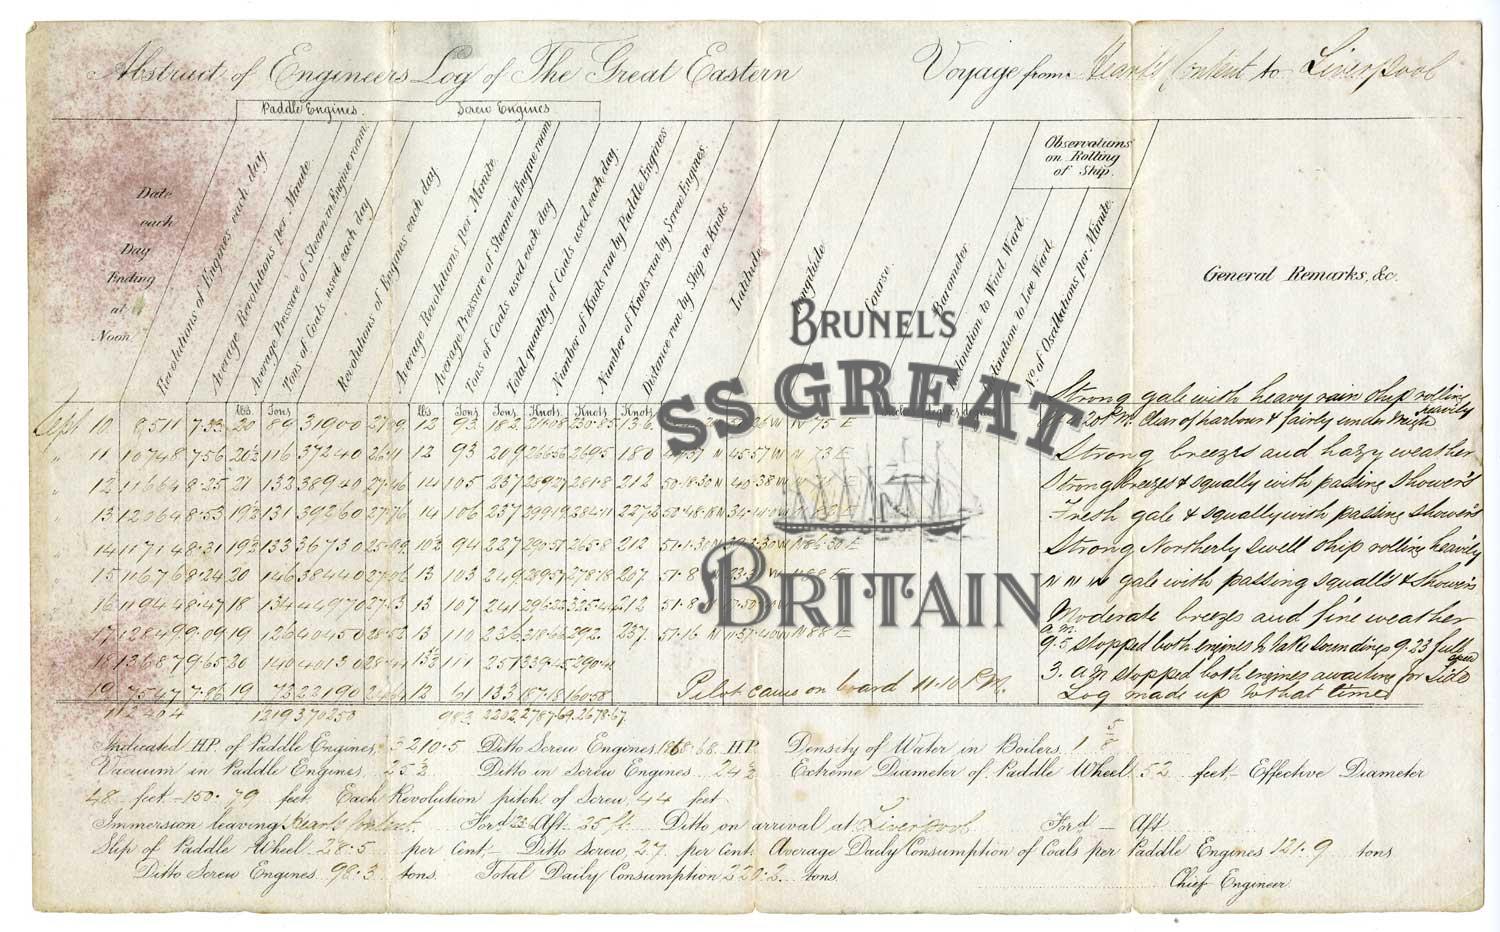 Abstract of Engineers Log of The Great Eastern Voyage from Heart's Content to Liverpool
Paddle Engines. Screw Engines
Date each Day Ending at Noon
Revolutions of Engines each day
Average Revolutions per Minute
Average Pressure of Steam in Engine room
Tons of Coals used each day
Revolutions of Engines each day
Average Revolutions per Minute
Average Pressure of Steam in Engine room
Tons of Coals used each day
Total quantity of Coals used each day.
Number of Knots run by Paddle Engines
Number of Knots run by Screw Engines.
Distance run by Ship in Knots
Latitude
Longitude
Course.
Barometer
Observations on Rolling of Ship.
Inclination to Wind Ward
Inclination to Lee Ward.
No. of Oscillations per Minute.
General Remarks, &c.
BRUNEL'S
SS GREAT
BRITAIN
lbs. Tons lbs Tons Tons Knots. Knots Knots
Strong gale with heavy rain ship rolling heavily
Sept 10 8511 7.33 20 89 31900 12 93 182 230.85 136 N 75 E 20 P.M. Clear of harbour & fairly under weigh
" 11 10748 7.56 20½ 116 37240 26.11 12 93 209 266.56 269.5 180 45.57 W N 73 E Strong breezes and hazy weather
" 12 11664 8.25 21 132 38940 27.46 14 105 237 281.8 212 50.18.30 N 40.38 W Strong breezes & squally with passing showers
" 13 12064 8.53 19½ 131 39260 27.76 14 106 237 299.19 284.11 227.2 50.48.18 N 34.14.0 W Fresh gale & squally with passing showers
14 11714 8.31 19½ 133 36730 10½ 94 227 290.51 265.8 212 51.1.30 N Strong Northerly swell ship rolling heavily
15 11676 8.24 20 146 38440 13 103 249 289.57 278.18 207. 51.8 N 88 E N N W gale with passing squalls & showers
16 11944 8.47 18 134 44970 13 107 241 212 51.8 Moderate breezes and fine weather
17 12849 9.09 19 126 40450 28.52 13 110 236 318.66 292. 237. 51.16 N 11.37.40 W N 88 E a.m. 9.5 stopped both engines to take soundings 9.23 full speed
18 13687 9.65 20 140 40130 28.41 13½ 111 251 339.45 290.4 3. a m stopped both engines awaiting for tide
19 7547 7.86 19 73 22190 12 61 133 187.18 160.58 Pilot came on board 11.10 P.M. Log made up to that time
112404 1219 370250 983 2202 2787.69. 2678.67.
Indicated HP. of Paddle Engines, 3210.5 Ditto Screw Engines, 1868.68. HP. Density of Water in Boilers. 1 5/8
Vacuum in Paddle Engines. 25½ Ditto in Screw Engines 24½ Extreme Diameter of Paddle Wheel 52 feet – Effective Diameter
48 feet – 150.79 feet. Each Revolution pitch of Screw, 44 feet
Immersion leaving Hearts Content. Ford 23 Aft. 25 ft. Ditto on arrival at Liverpool Ford – Aft
Slip of Paddle Wheel 28.5 per Cent. – Ditto Screw, 27 per Cent. Average Daily Consumption of Coals per Paddle Engines 121.9 tons
Ditto Screw Engines. 98.3 tons. Total Daily Consumption 220.2 tons.
Chief Engineer.